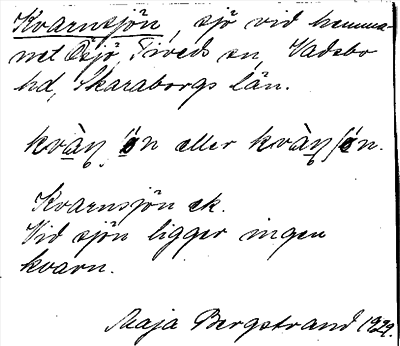 Kvarnsjön, sjö vid hemma-
net Ösjö, Tiveds sn, Vadsbo
hd, Skaraborgs län.
eller
Kvarnsjön ek.
Vid sjön ligger ingen
kvarn.
Maja Bergstrand 1929.